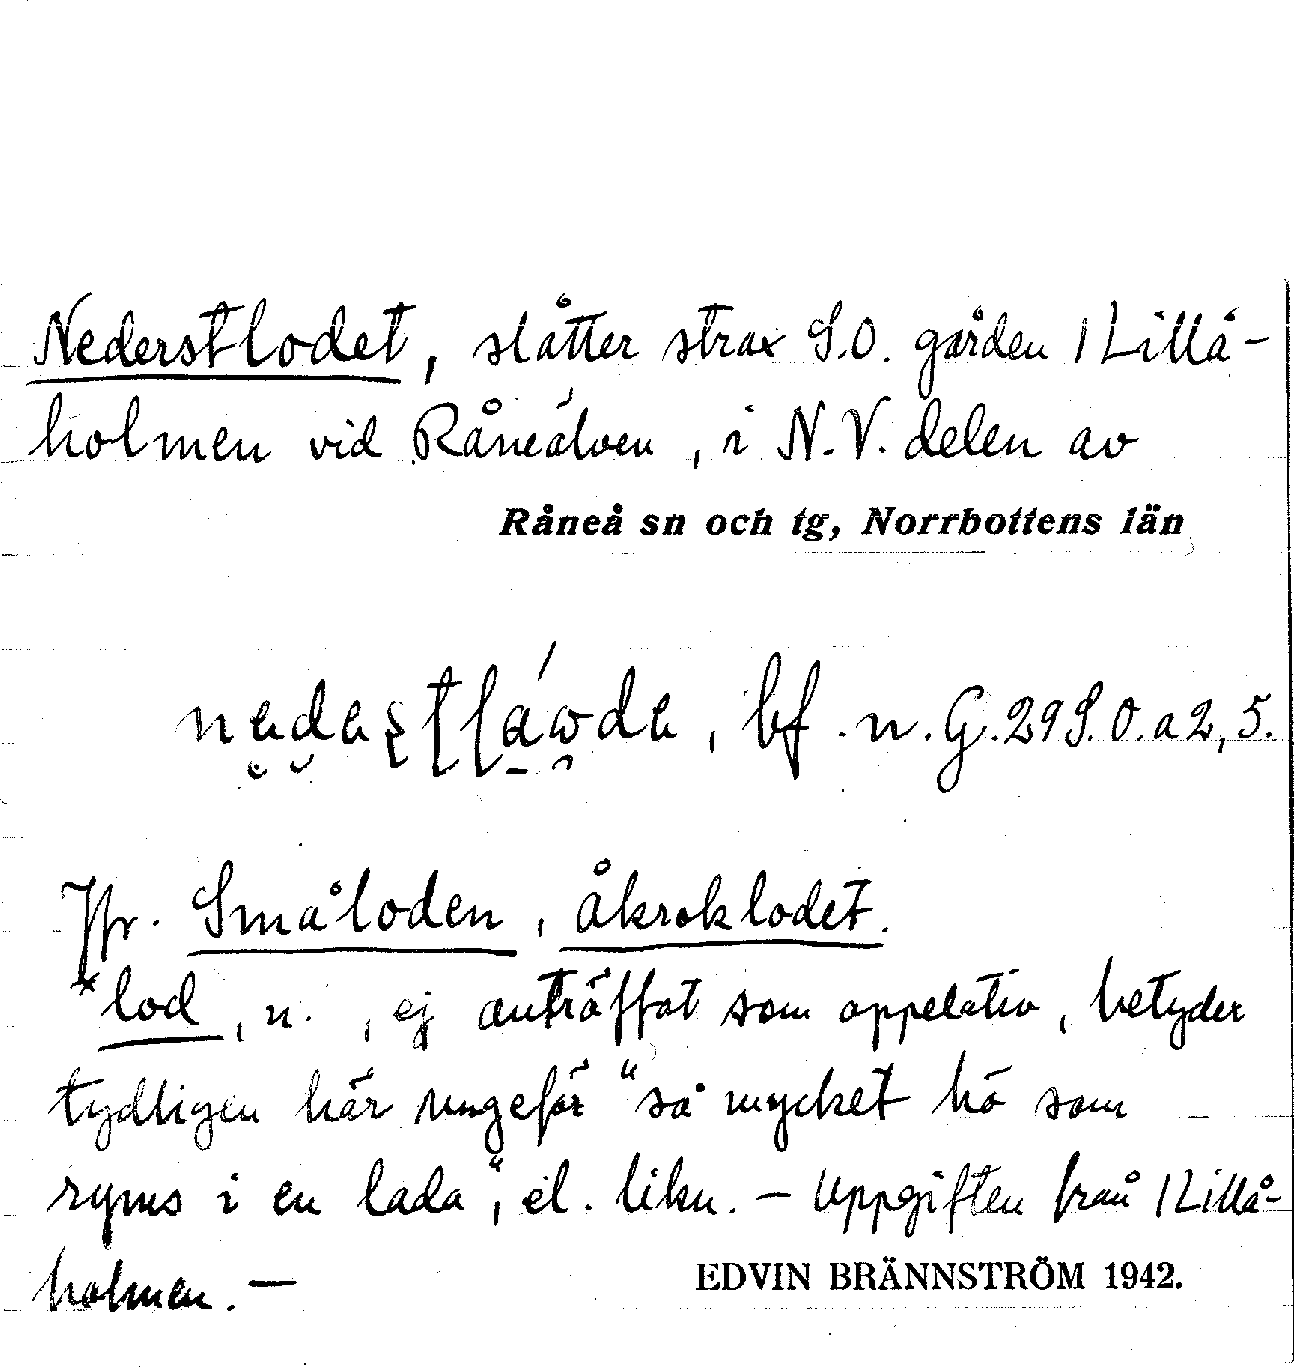 Nederstlodet, slåtter strax S.O. gården 1 Lillå-
holmen vid Råneälven, i N.V. delen av
Råneå sn och tg, Norrbottens län
bf. n. G. 29 S.O. a 2, 5.
Jfr. Småloden, åkroklodet.
*lod, n., ej anträffat som appelativ, betyder
tydligen här ungefär "så mycket hö som
ryms i en lada", el. likn. – Uppgiften från 1 Lillå-
holmen. –
EDVIN BRÄNNSTRÖM 1942.